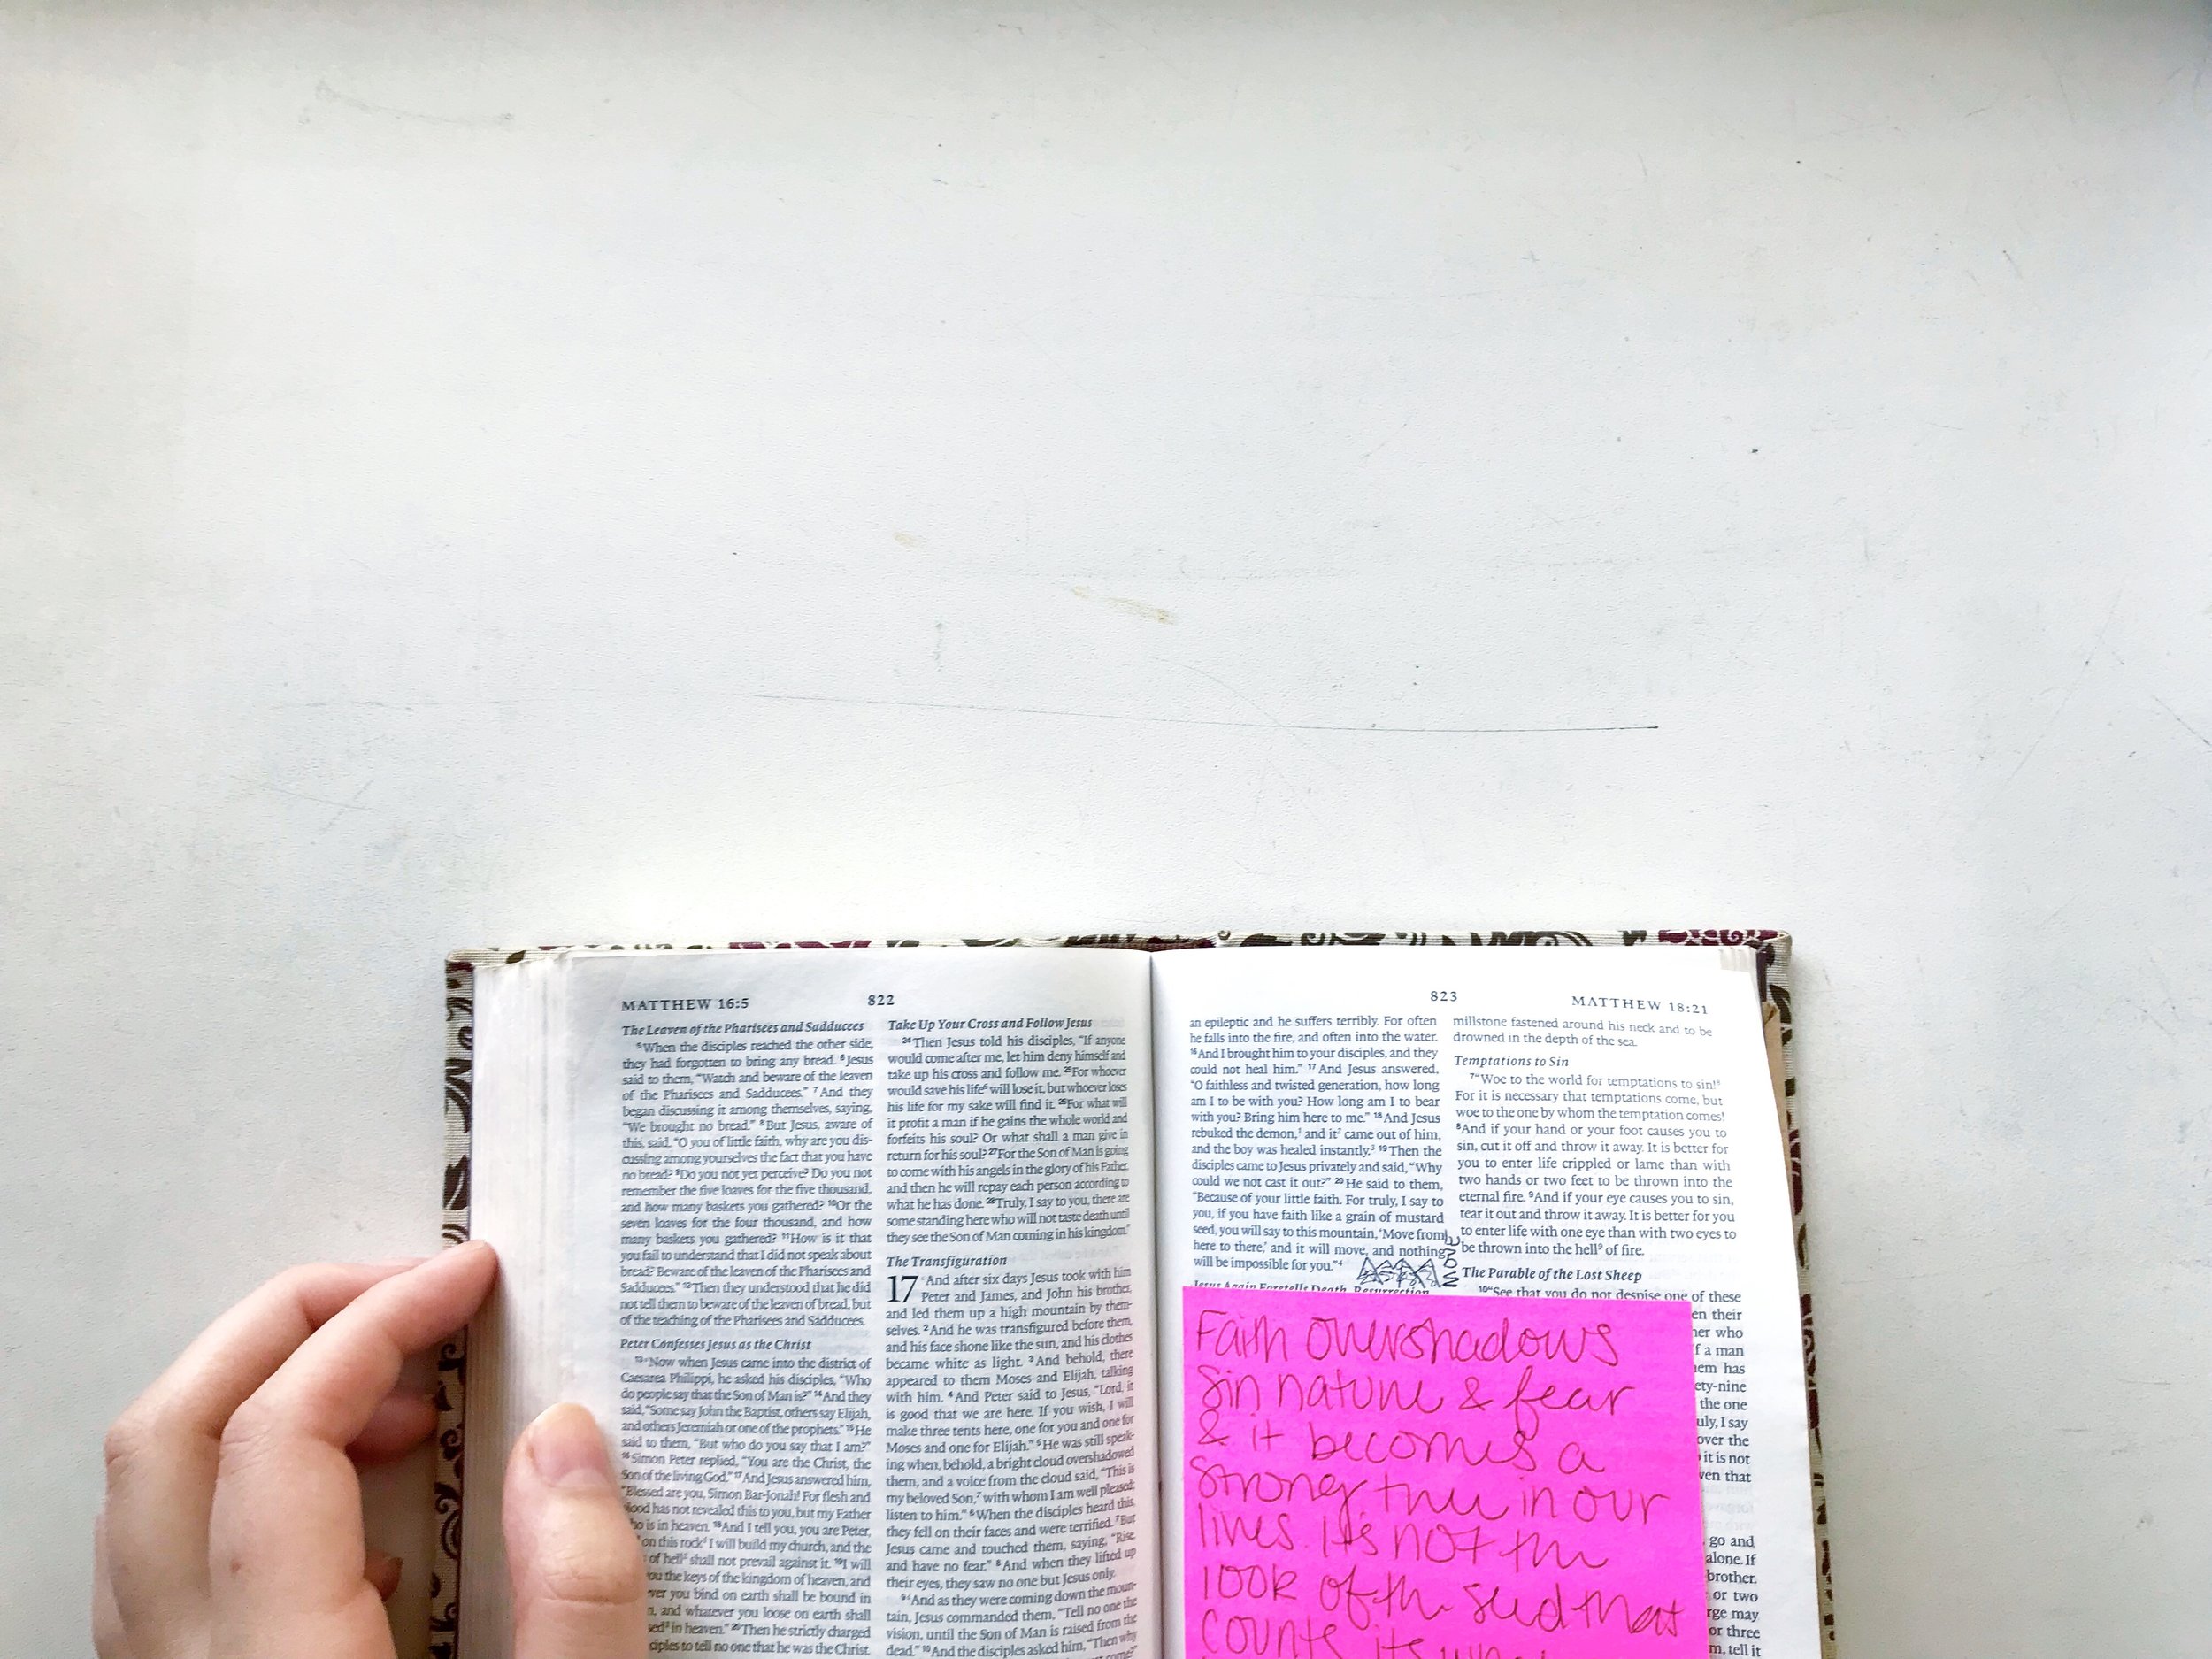 MATTHEW 16:5
822
The Leaven of the Pharisees and Sadducees
⁵When the disciples reached the other side,
they had forgotten to bring any bread. ⁶Jesus
said to them, “Watch and beware of the leaven
of the Pharisees and Sadducees.” ⁷And they
began discussing it among themselves, saying,
“We brought no bread.” ⁸But Jesus, aware of
this, said, “O you of little faith, why are you dis-
cussing among yourselves the fact that you have
no bread? ⁹Do you not yet perceive? Do you not
remember the five loaves for the five thousand,
and how many baskets you gathered? ¹⁰Or the
seven loaves for the four thousand, and how
many baskets you gathered? ¹¹How is it that
you fail to understand that I did not speak about
bread? Beware of the leaven of the Pharisees and
Sadducees.” ¹²Then they understood that he did
not tell them to beware of the leaven of bread, but
of the teaching of the Pharisees and Sadducees.
Peter Confesses Jesus as the Christ
¹³Now when Jesus came into the district of
Caesarea Philippi, he asked his disciples, “Who
do people say that the Son of Man is?” ¹⁴And they
said, “Some say John the Baptist, others say Elijah,
and others Jeremiah or one of the prophets.” ¹⁵He
said to them, “But who do you say that I am?”
¹⁶Simon Peter replied, “You are the Christ, the
Son of the living God.” ¹⁷And Jesus answered him,
“Blessed are you, Simon Bar-Jonah! For flesh and
blood has not revealed this to you, but my Father
who is in heaven. ¹⁸And I tell you, you are Peter,
on this rock¹ I will build my church, and the
of hell² shall not prevail against it. ¹⁹I will
you the keys of the kingdom of heaven, and
ver you bind on earth shall be bound in
n, and whatever you loose on earth shall
sed³ in heaven.” ²⁰Then he strictly charged
ciples to tell no one that he was the Christ.
Take Up Your Cross and Follow Jesus
²⁴Then Jesus told his disciples, “If anyone
would come after me, let him deny himself and
take up his cross and follow me. ²⁵For whoever
would save his life⁶ will lose it, but whoever loses
his life for my sake will find it. ²⁶For what will
it profit a man if he gains the whole world and
forfeits his soul? Or what shall a man give in
return for his soul? ²⁷For the Son of Man is going
to come with his angels in the glory of his Father,
and then he will repay each person according to
what he has done. ²⁸Truly, I say to you, there are
some standing here who will not taste death until
they see the Son of Man coming in his kingdom.”
The Transfiguration
17 And after six days Jesus took with him
Peter and James, and John his brother,
and led them up a high mountain by them-
selves. ²And he was transfigured before them,
and his face shone like the sun, and his clothes
became white as light. ³And behold, there
appeared to them Moses and Elijah, talking
with him. ⁴And Peter said to Jesus, “Lord, it
is good that we are here. If you wish, I will
make three tents here, one for you and one for
Moses and one for Elijah.” ⁵He was still speak-
ing when, behold, a bright cloud overshadowed
them, and a voice from the cloud said, “This is
my beloved Son,⁷ with whom I am well pleased;
listen to him.” ⁶When the disciples heard this,
they fell on their faces and were terrified. ⁷But
Jesus came and touched them, saying, “Rise,
and have no fear.” ⁸And when they lifted up
their eyes, they saw no one but Jesus only.
⁹And as they were coming down the moun-
tain, Jesus commanded them, “Tell no one the
vision, until the Son of Man is raised from the
dead.” ¹⁰And the disciples asked him, “Then why
come?”
823
MATTHEW 18:21
an epileptic and he suffers terribly. For often
he falls into the fire, and often into the water.
¹⁶And I brought him to your disciples, and they
could not heal him.” ¹⁷And Jesus answered,
“O faithless and twisted generation, how long
am I to be with you? How long am I to bear
with you? Bring him here to me.” ¹⁸And Jesus
rebuked the demon,¹ and it² came out of him,
and the boy was healed instantly.³ ¹⁹Then the
disciples came to Jesus privately and said, “Why
could we not cast it out?” ²⁰He said to them,
“Because of your little faith. For truly, I say to
you, if you have faith like a grain of mustard
seed, you will say to this mountain, ‘Move from
here to there,’ and it will move, and nothing
will be impossible for you.”⁴
Jesus Again Foretells Death, Resurrection
millstone fastened around his neck and to be
drowned in the depth of the sea.
Temptations to Sin
⁷“Woe to the world for temptations to sin!⁸
For it is necessary that temptations come, but
woe to the one by whom the temptation comes!
⁸And if your hand or your foot causes you to
sin, cut it off and throw it away. It is better for
you to enter life crippled or lame than with
two hands or two feet to be thrown into the
eternal fire. ⁹And if your eye causes you to sin,
tear it out and throw it away. It is better for you
to enter life with one eye than with two eyes to
be thrown into the hell⁹ of fire.
The Parable of the Lost Sheep
¹⁰“See that you do not despise one of these
en their
her who
f a man
hem has
ety-nine
the one
uly, I say
over the
it is not
ven that
go and
alone. If
brother.
or two
rge may
or three
m, tell it
Faith overshadows
sin nature & fear
& it becomes a
strong tree in our
lives. Its not the
look of the seed that
counts, its